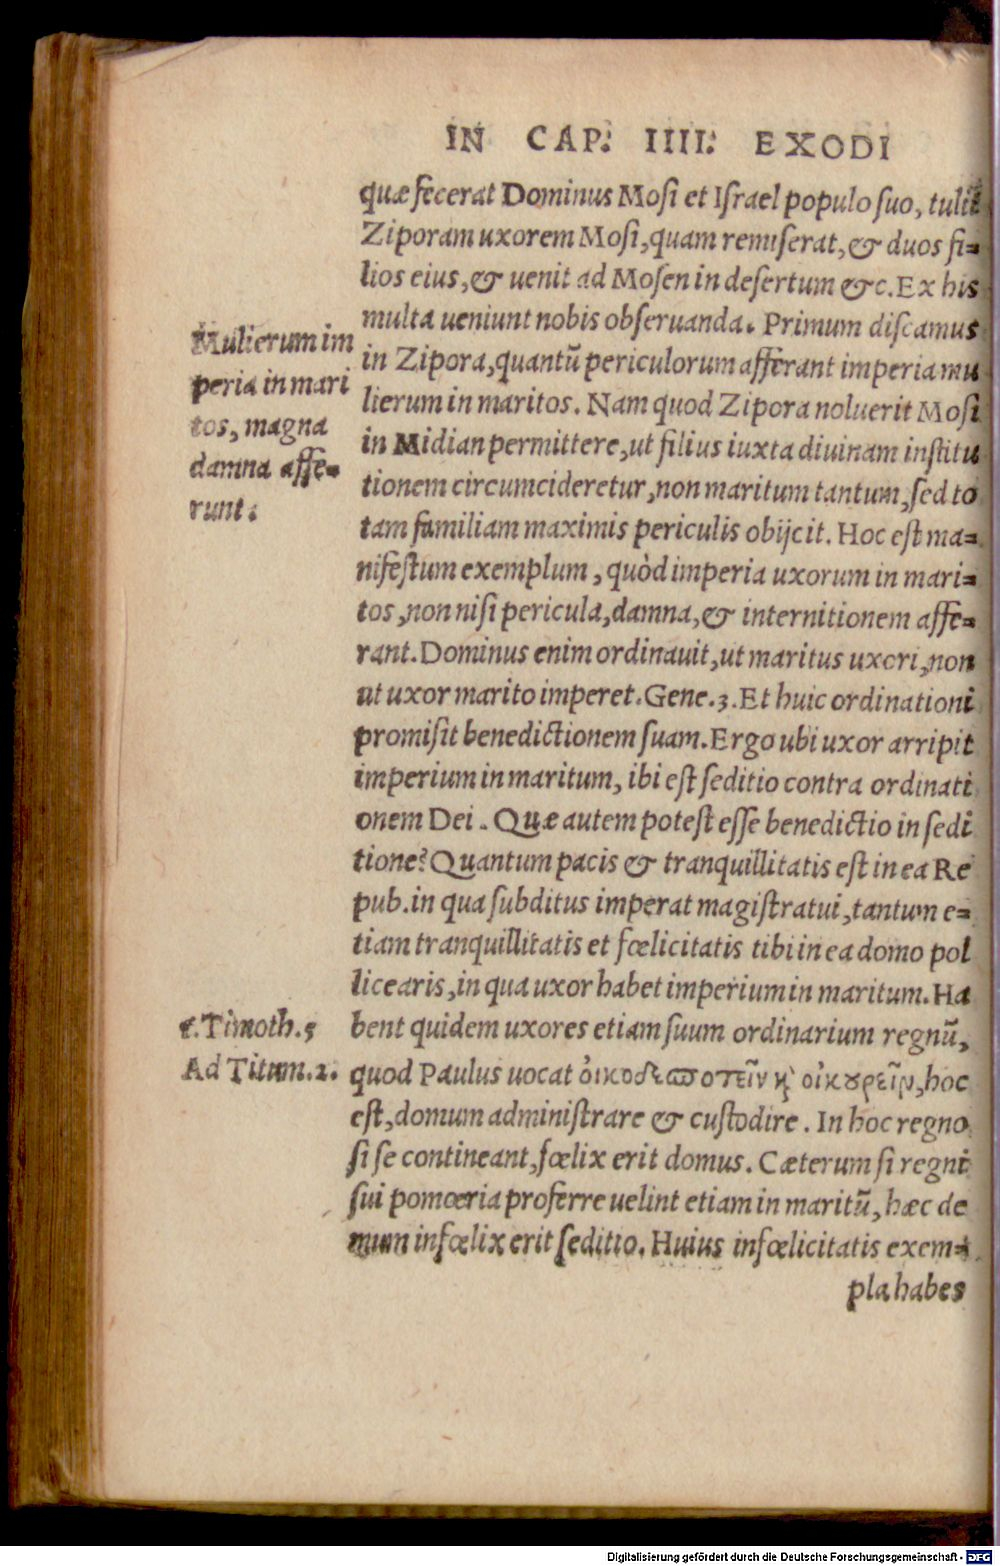 IN CAP. IIII. EXODI
quæ fecerat Dominus Mosi et Israel populo suo, tulit
Ziporam uxorem Mosi, quam remiserat, & duos fi-
lios eius, & uenit ad Mosen in desertum &c. Ex his
multa ueniunt nobis obseruanda. Primum discamus
in Zipora, quantũ periculorum afferant imperia mu
lierum in maritos. Nam quod Zipora noluerit Mosi
in Midian permittere, ut filius iuxta diuinam institu
tionem circumcideretur, non maritum tantum, sed to
tam familiam maximis periculis obijcit. Hoc est ma-
nifestum exemplum, quòd imperia uxorum in mari-
tos, non nisi pericula, damna, & internitionem affe-
rant. Dominus enim ordinauit, ut maritus uxori, non
ut uxor marito imperet. Gene. 3. Et huic ordinationi
promisit benedictionem suam. Ergo ubi uxor arripit
imperium in maritum, ibi est seditio contra ordinati
onem Dei. Quæ autem potest esse benedictio in sedi
tione? Quantum pacis & tranquillitatis est in ea Re
pub. in qua subditus imperat magistratui, tantum e-
tiam tranquillitatis et fœlicitatis tibi in ea domo pol
licearis, in qua uxor habet imperium in maritum. Ha
bent quidem uxores etiam suum ordinarium regnũ,
quod Paulus uocat ὀικοδεσποτεῖν κὶ οἰκουρεῖν, hoc
est, domum administrare & custodire. In hoc regno
si se contineant, fœlix erit domus. Cæterum si regni
sui pomœria proferre uelint etiam in maritũ, hæc de
mum infœlix erit seditio. Huius infœlicitatis exem-
pla habes
Mulierum im
peria in mari
tos, magna
damna affe-
runt.
1. Timoth. 5
Ad Titum. 2.
Digitalisierung gefördert durch die Deutsche Forschungsgemeinschaft - DFG